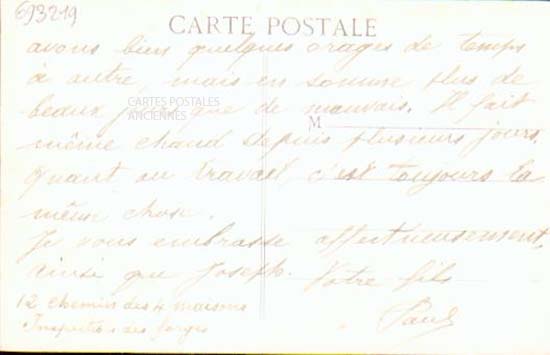 693219
CARTE POSTALE
avons bien quelques orages de temps
à autre, mais en somme plus de
beaux jours que de mauvais. Il fait
CARTES POSTALES
ANCIENNES
M
même chaud depuis plusieurs jours.
Quant au travail, c'est toujours la
même chose.
Je vous embrasse affectueusement,
ainsi que Joseph. Votre fils
Paul
12 chemin des 4 maisons
Inspection des forges